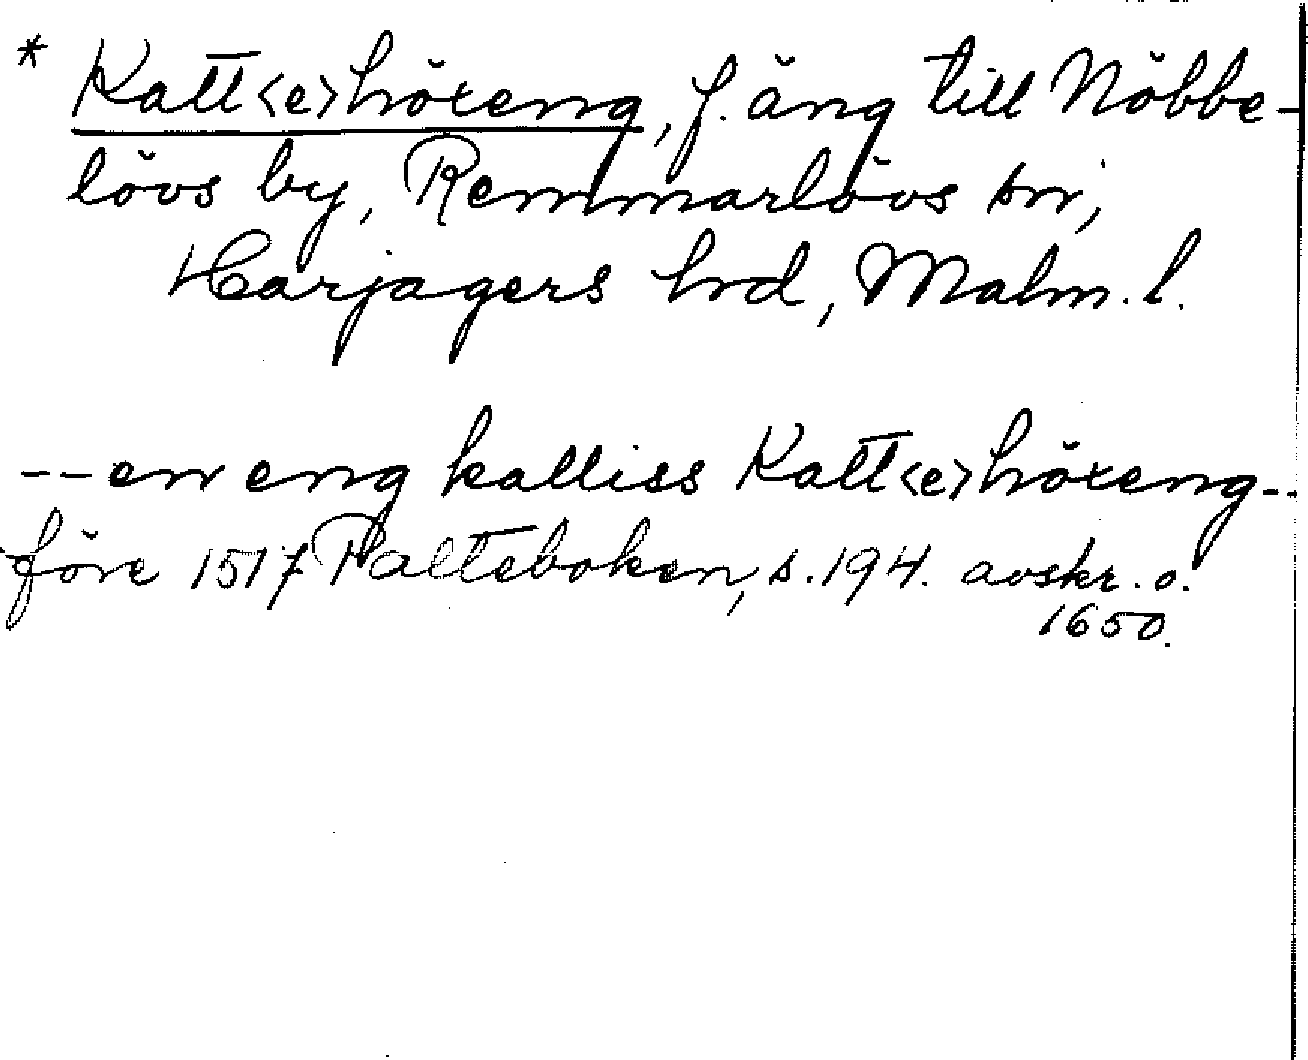 * Katt<e>höxeng, f. äng till Nöbbe-
lövs by, Remmarlövs sn,
Harjagers hrd, Malm. l.
-- en eng kalliss Katt<e>höxeng --
före 1517 Palteboken, s. 194. avskr. o.
1650.